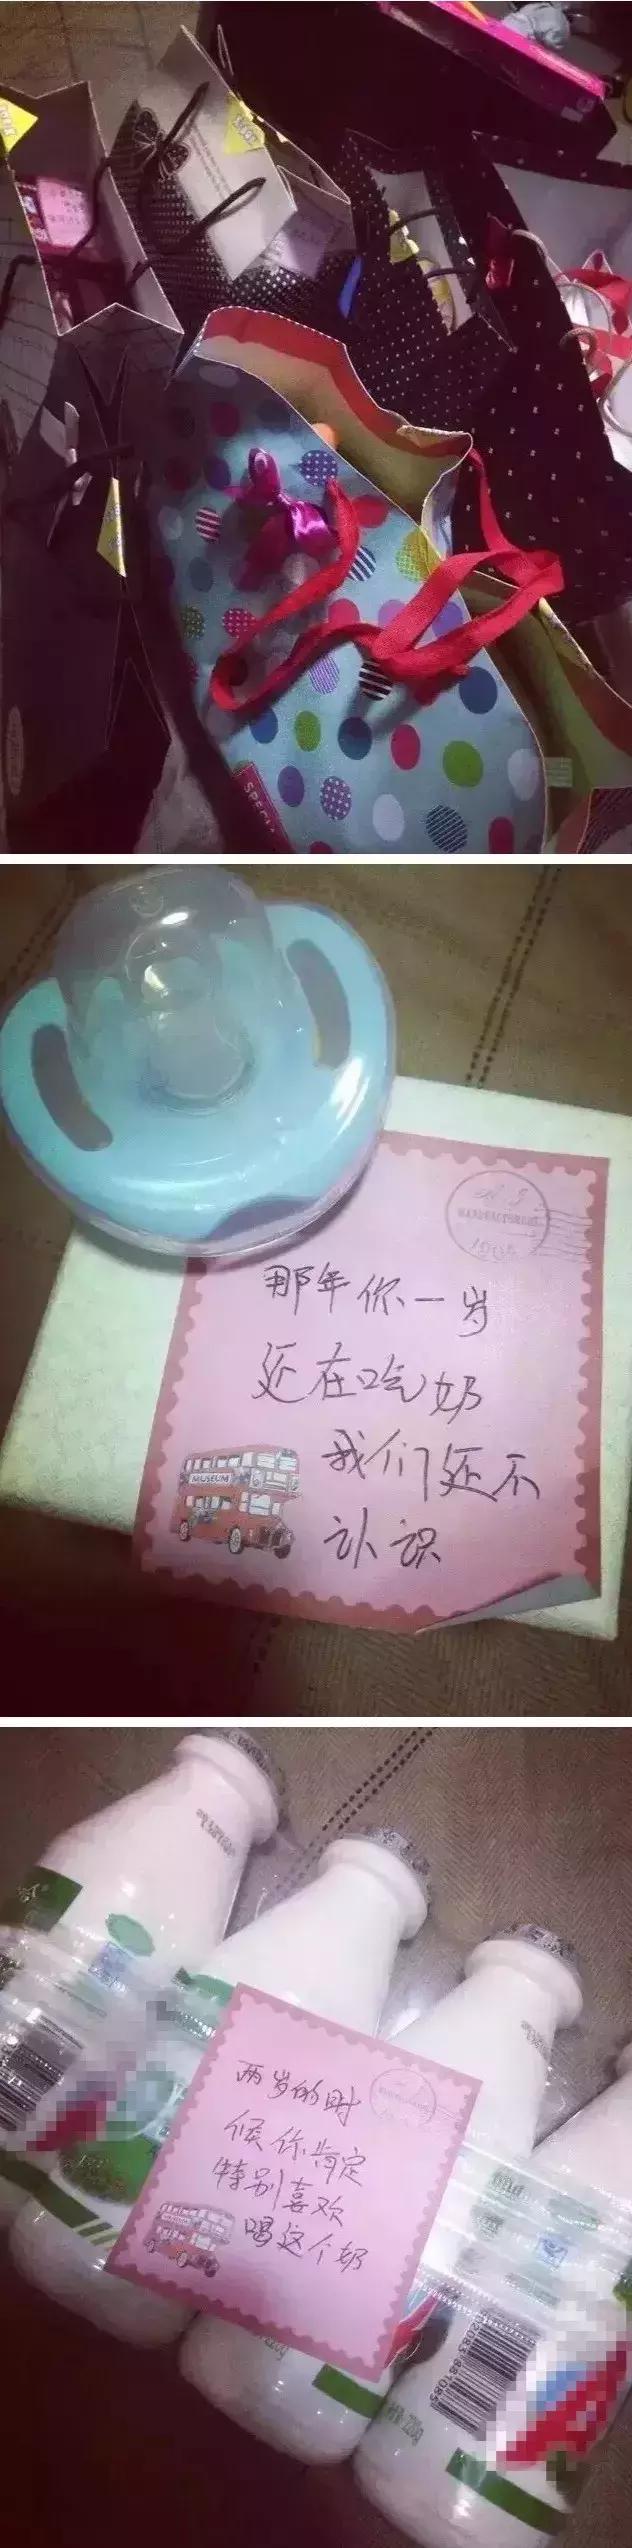 SPECIA
MANUFACTURERS
那年你一岁
还在吃奶
我们还不
认识
MUSEUM
两岁的时
候你肯定
特别喜欢
喝这个奶